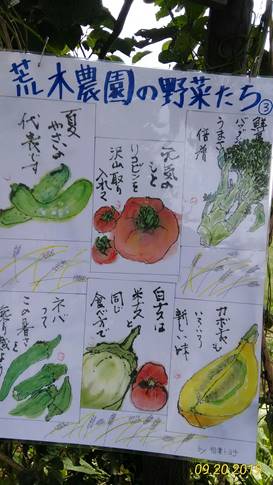 荒木農園の野菜たち③
鮮度
バツグン
うまさ
倍増
元気の
もと
リコピンを
沢山取り
入れて
夏
やさいの
代表です
カボチャも
いろいろ
新しい味
白ナスは
米ナスと
同じ
食べ方で
ネバ
って
この暑さ
を
乗り越よう
by
09.20.2015